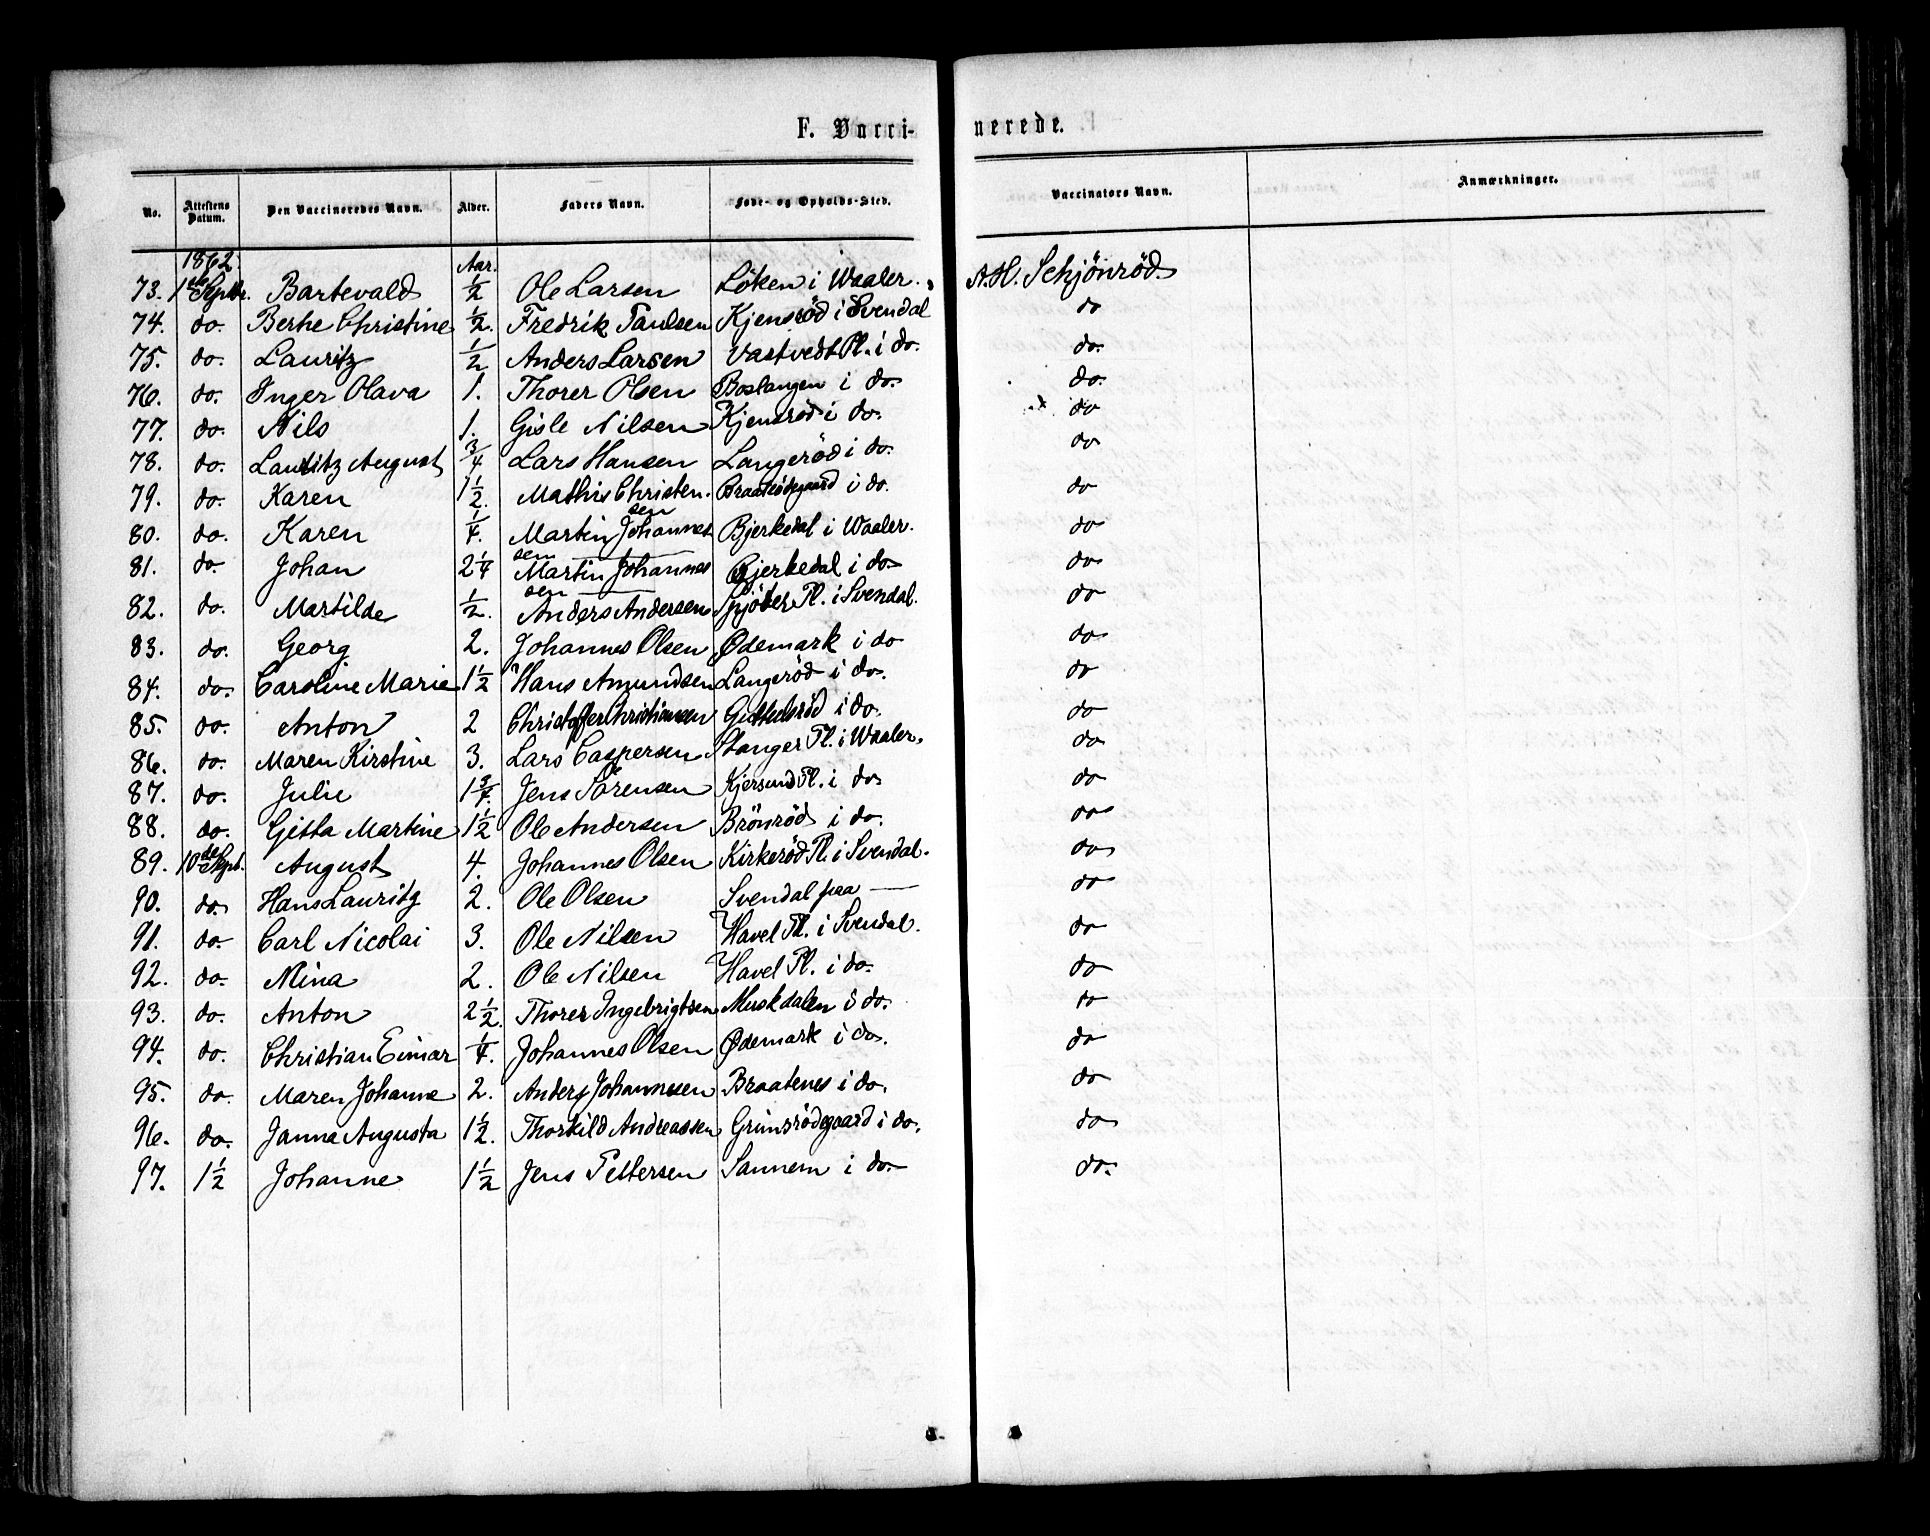 F. Vacci- nerede.
No. Attestens Datum. Den Vaccineredes Navn. Alder. Faders Navn. Føde- og Opholds-Sted. Vaccinators Navn. Anmærkninger.
1862. Aar.
73. 1ste Septbr. Bartevald 1/2 Ole Larsen Löken i Waaler. A.H. Schjönröd.
74. do. Berthe Christine 1/2. Fredrik Paulsen Kjensröd i Svendal do
75. do. Lauritz 1/2 Anders Larsen Vastvedt Pl. i do. do.
76. do. Inger Olava 1. Thorer Olsen Boslangen i do. do.
77. do. Nils 1. Gisle Nilsen Kjensröd i do. do
78. do. Lauritz August 3/4 Lars Hansen Langeröd i do. do
79. do. Karen 1 1/2. Mathis Christensen Braateödegaard i do. do
80. do. Karen 1/4. Martin Johannessen Bjerkedal i Waaler. do
81. do. Johan 2 1/4 Martin Johannessen Bjerkedal i do. do
82. do. Martilde 1/2. Anders Andersen Pl. i Svendal. do
83. do. Georg 2. Johannes Olsen Ødemark i do do
84. do. Caroline Marie 1 1/2 Hans Amundsen Langeröd i do. do
85. do. Anton 2 Christoffer Christiansen i do. do
86. do. Maren Kirstine 3. Lars Caspersen Stanger Pl. i Waaler. do
87. do. Julie 1 3/4. Jens Sörensen Kjersund Pl. i do do
88. do. Gitta Martine 1 1/2 Ole Andersen Brönröd i do. do
89. 10de Septb. August 4. Johannes Olsen Kirkeröd Pl. i Svendal. do
90. do. Hans Lauritz 2. Ole Olsen Svendal paa — do
91. do. Carl Nicolai 3. Ole Nilsen Havel Pl. i Svendal. do
92. do. Mina 2. Ole Nilsen Havel Pl. i do. do
93. do. Anton 2 1/2. Thorer Ingebrigtsen Muskdalen i do. do
94. do. Christian Eimar 1/4. Johannes Olsen Ødemark i do. do
95. do. Maren Johanne 2. Anders Johannesen Braatenes i do. do
96. do. Janna Augusta 1 1/2. Thorkild Andreassen Grimsrödgaard i do. do
97. 1 1/2 Johanne 1 1/2 Jens Pettersen Sannem i do. do.